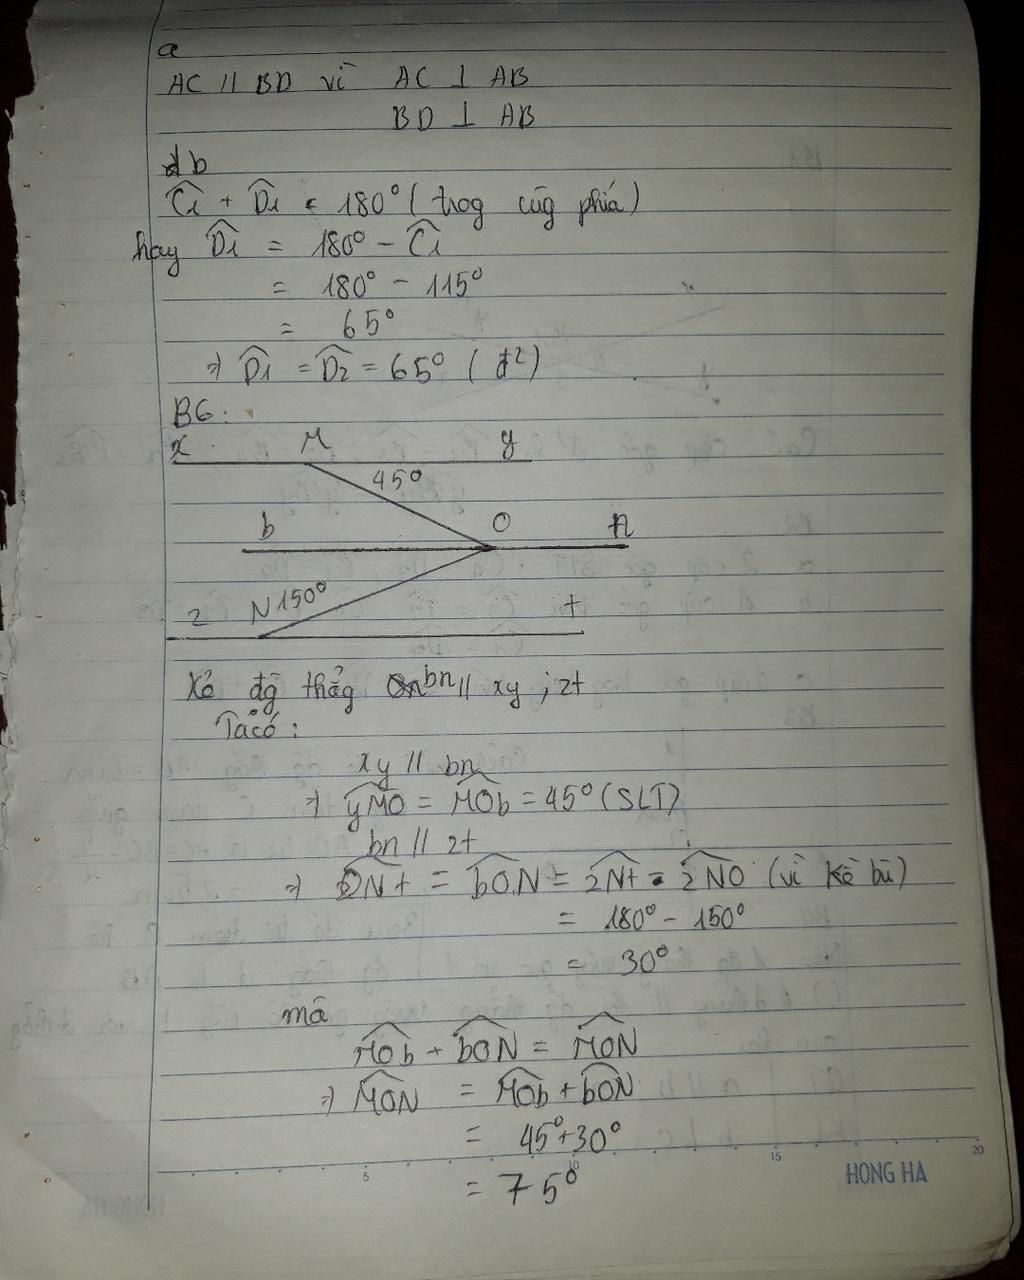 a
AC // BD vì AC ⊥ AB
BD ⊥ AB
b
Ĉ1 + D̂1 = 180° (trog cùg phía)
hay D̂1 = 180° - Ĉ1
= 180° - 115°
= 65°
⇒ D̂1 = D̂2 = 65° (đ²)
B6:
x M y
45°
b O n
z N 150° t
Kẻ đg thẳg bn // xy ; zt
Ta có:
xy // bn
⇒ yMO = MOb = 45° (SLT)
bn // zt
⇒ ONt = bON = zNt - zNO (vì kề bù)
= 180° - 150°
= 30°
mà
MOb + bON = MON
⇒ MON = MOb + bON
= 45° + 30°
= 75°
5 10 15 20
HONG HA